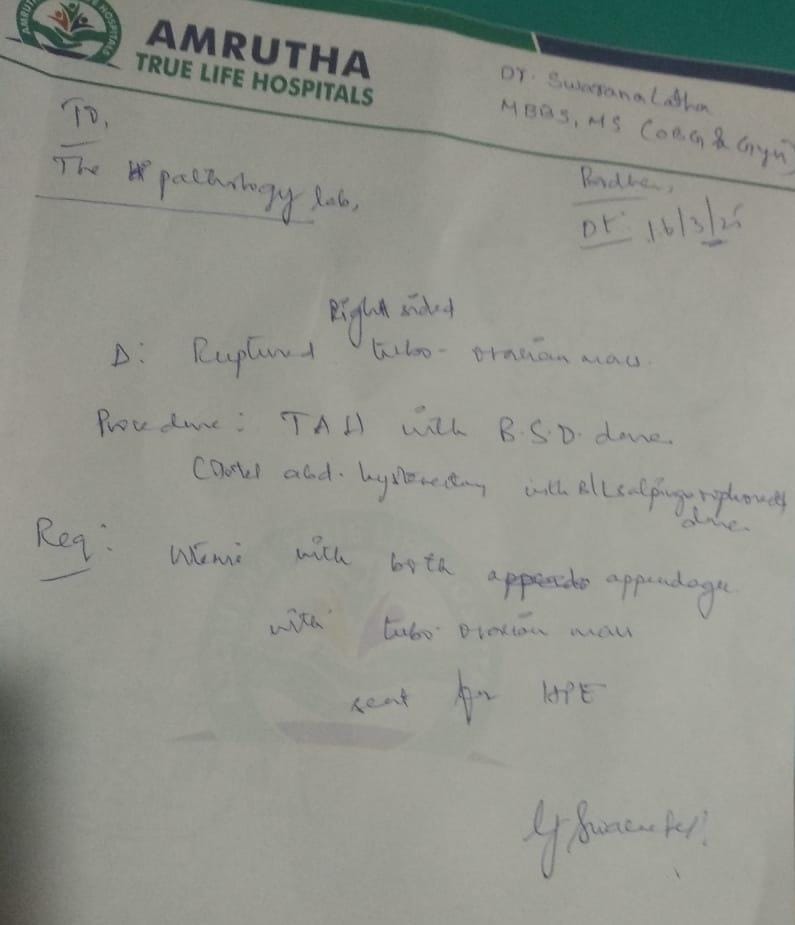 AMRUTHA
TRUE LIFE HOSPITALS
Dr. Swarana Latha
MBBS, MS (OBG & Gyn)
To,
The pathology lab,
Dt: 16/3/25
Right sided
D: Ruptured tubo-ovarian mass.
Procedure: TAH with B.S.O. done.
(Total abd. hysterectomy with B/L salpingo oophorectomy
done.
Req: Uterus with both appendages
with tubo-ovarian mass
sent for HPE